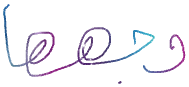 وجهها